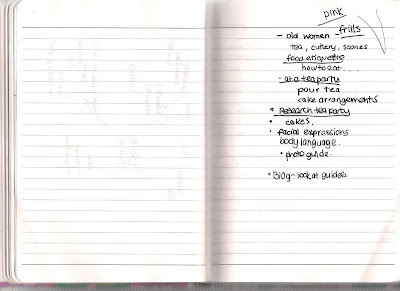 pink
- old women - frills
tea, cutlery, scones
food etiquette
how to eat...
- at a tea party
pour tea
cake arrangements
• Research tea party
• cakes.
• facial expressions
body language.
• photo guide.
• Blog - look at guides